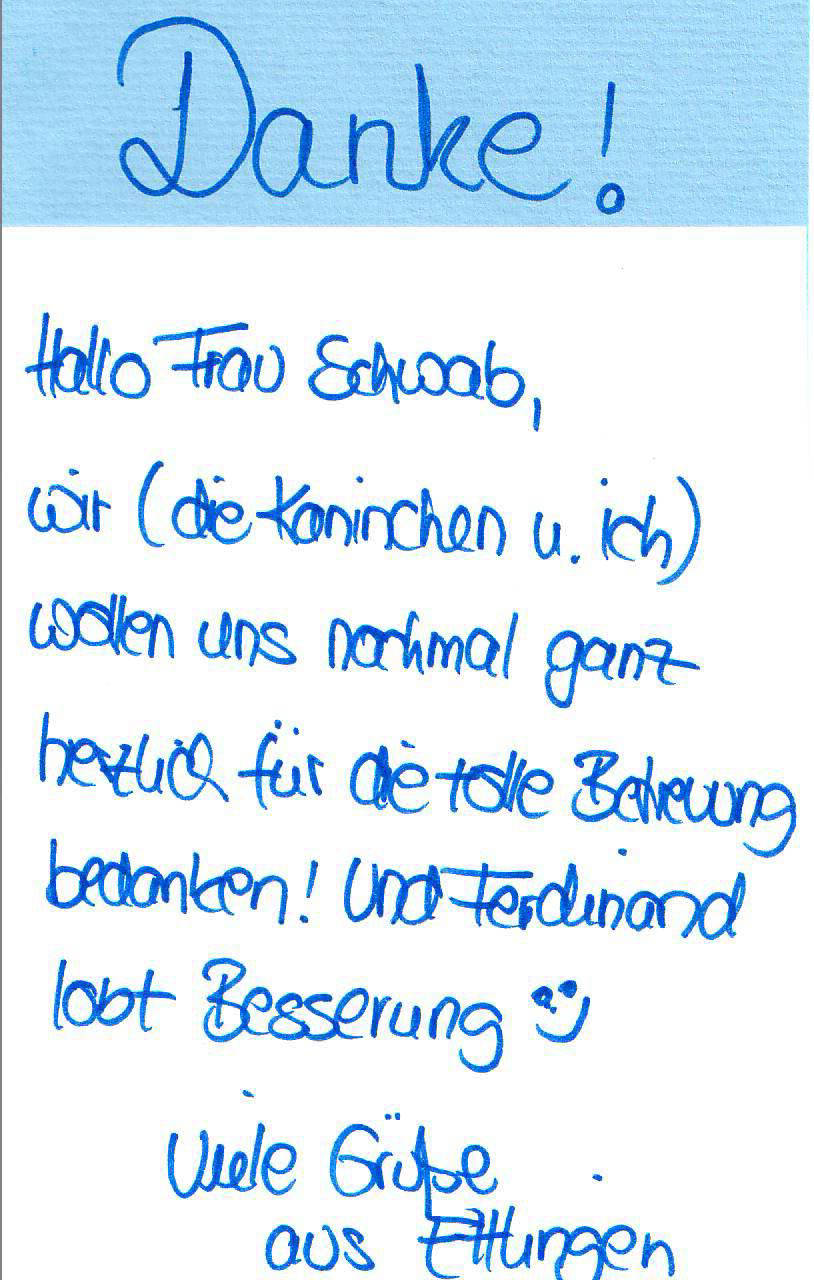 Danke!
Hallo Frau Schwab,
wir (die Kaninchen u. ich)
wollen uns nochmal ganz
herzlich für die tolle Betreuung
bedanken! Und Ferdinand
lobt Besserung
Viele Grüße
aus Ettlingen